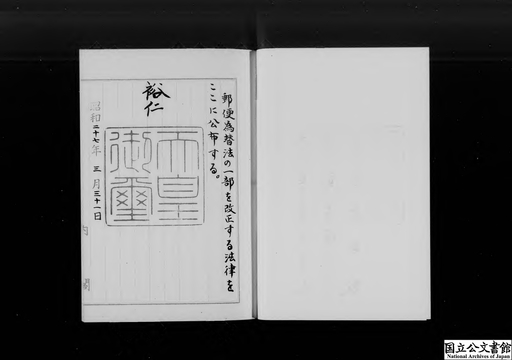 郵便為替法の一部を改正する法律を
ここに公布する。
裕仁
天皇
御璽
昭和二十七年三月三十一日
内閣
国立公文書館
National Archives of Japan